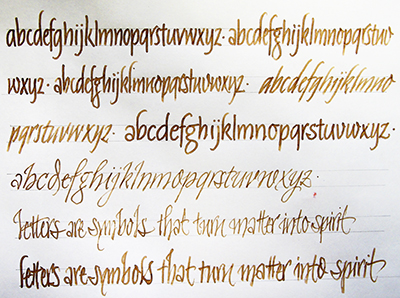 abcdefghijklmnopqrstuvwxyz · abcdefghijklmnopqrstuv
wxyz · abcdefghijklmnopqrstuvwxyz · abcdefghijklmno
pqrstuvwxyz · abcdefghijklmnopqrstuvwxyz ·
abcdefghijklmnopqrstuvwxyz ·
letters are symbols that turn matter into spirit
letters are symbols that turn matter into spirit